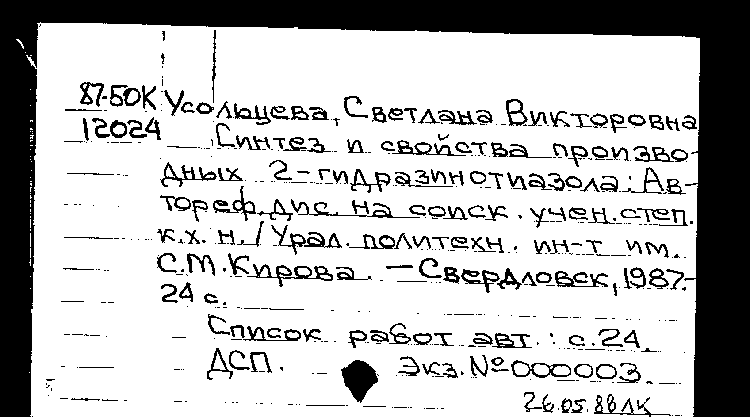 87-50К Усольцева, Светлана Викторовна
12024 Синтез и свойства произво-
дных 2-гидразинотиазола: Ав-
тореф. дис. на соиск. учен. степ.
к.х.н./Урал. политехн. ин-т им.
С.М.Кирова. — Свердловск, 1987.-
24 с.
Список работ авт.: с.24.
ДСП. Экз. №000003.
26.05.88 ЛК